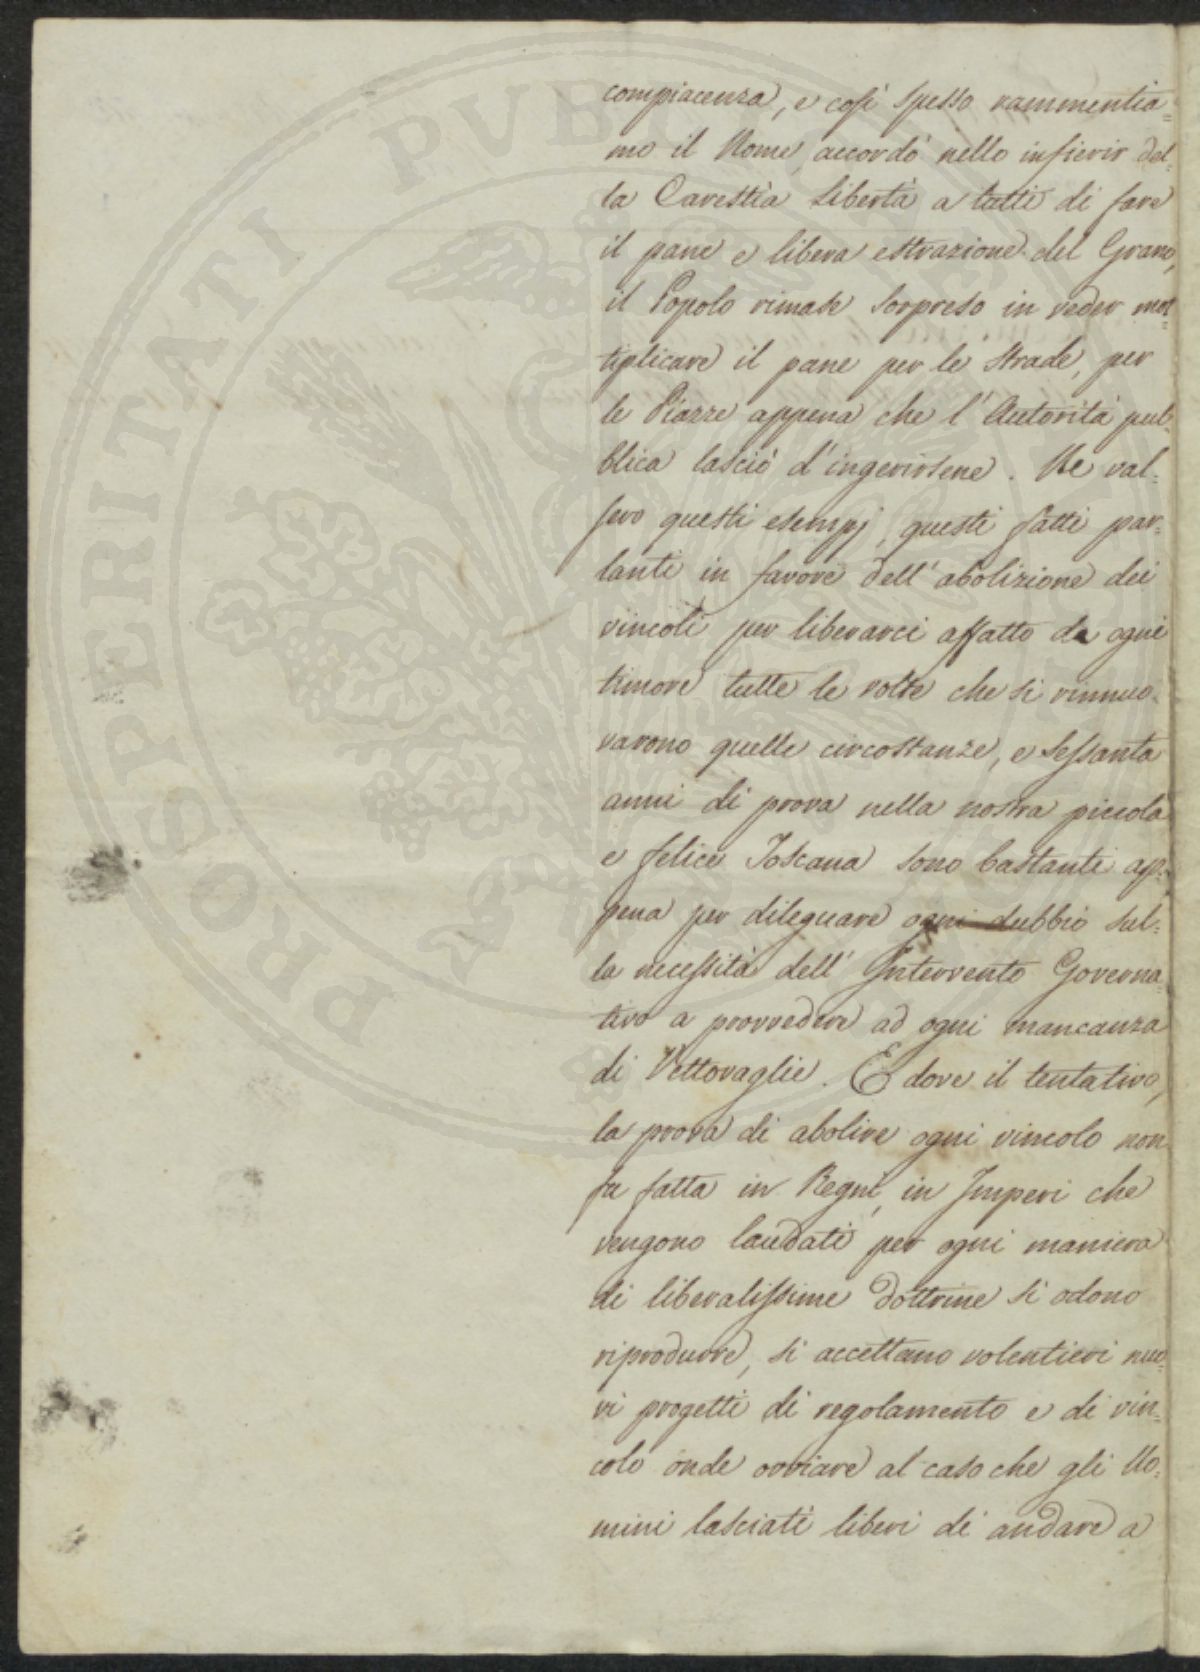 compiacenza, e così spesso rammentia=
mo il Nome, accordò nello infierir del=
la Carestia libertà a tutti di fare
il pane e libera estrazione del Grano,
il Popolo rimase sorpreso in veder mol=
tiplicare il pane per le strade, per
le Piazze appena che l'Autorità pub=
blica lasciò d'ingerirsene. Ne val=
sero questi esempj, questi fatti par=
lanti in favore dell'abolizione dei
vincoli per liberarci affatto da ogni
timore tutte le volte che si rinnuo=
varono quelle circostanze, e sessanta
anni di prova nella nostra piccola
e felice Toscana sono bastanti ap=
pena per dileguare ogni dubbio sul=
la necessità dell'Intervento Governa=
tivo a provvedere ad ogni mancanza
di Vettovaglie. E dove il tentativo,
la prova di abolire ogni vincolo non
fu fatta in Regni, in Imperi che
vengono laudati per ogni maniera
di liberalissime dottrine si odono
riprodurre, si accettano volentieri nuo=
vi progetti di regolamento e di vin=
colo onde ovviare al caso che gli Uo=
mini lasciati liberi di andare a
PROSPERITATI PUBL